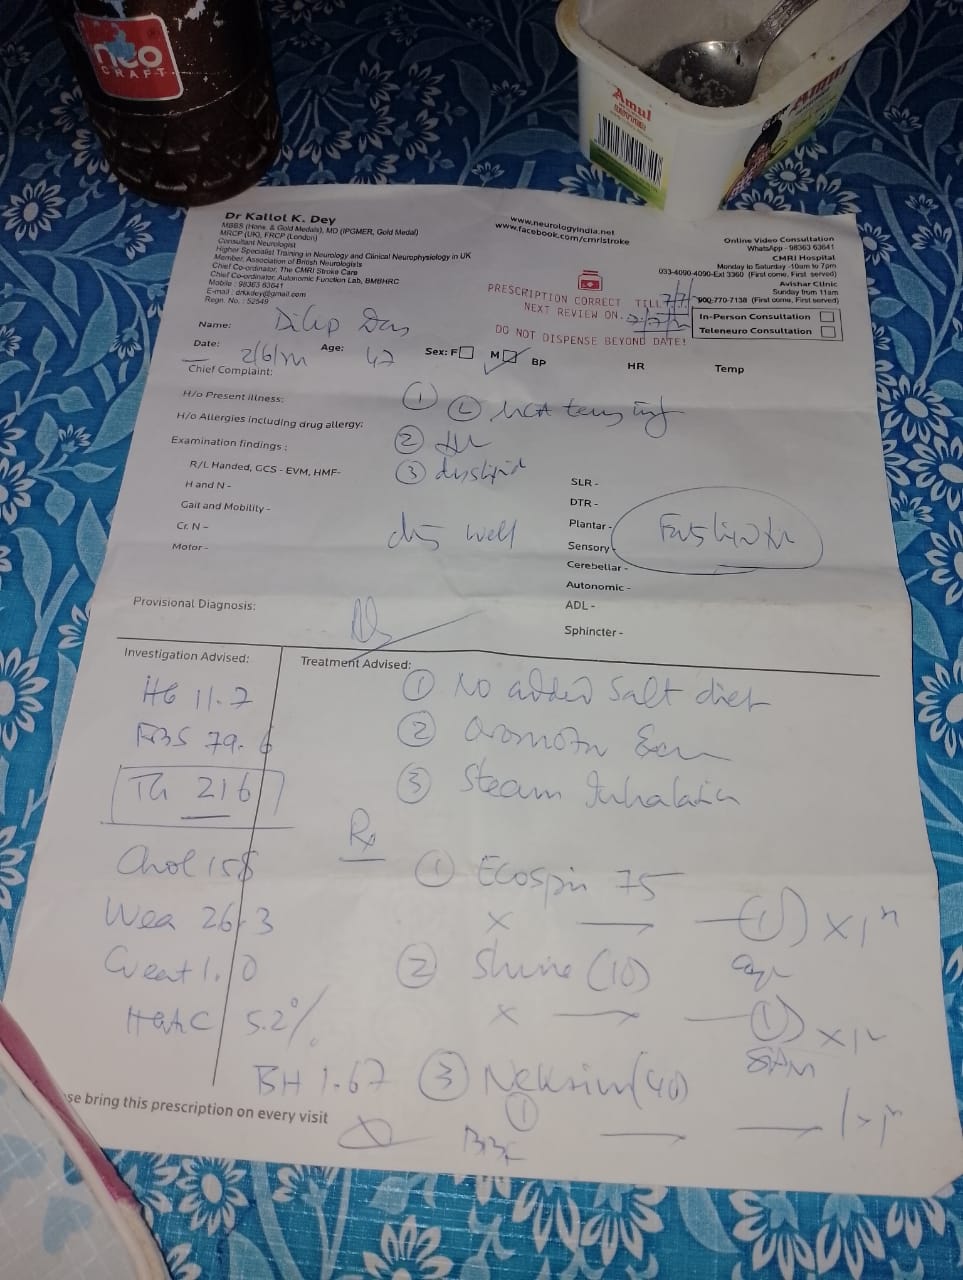 neo
CRAFT
Amul
Dr Kallol K. Dey
MBBS (Hons. & Gold Medals), MD (IPGMER, Gold Medal)
MRCP (UK), FRCP (London)
Consultant Neurologist
Higher Specialist Training in Neurology and Clinical Neurophysiology in UK
Member, Association of British Neurologists
Chief Co-ordinator, The CMRI Stroke Care
Chief Co-ordinator, Autonomic Function Lab, BMBHRC
Mobile : 98363 63641
E-mail : drkkdey@gmail.com
Regn. No. : 52549
www.neurologyindia.net
www.facebook.com/cmristroke
Online Video Consultation
WhatsApp - 98363 63641
CMRI Hospital
Monday to Saturday -10am to 7pm
033-4090-4090-Ext 3360 (First come, First served)
Avishar Clinic
Sunday from 11am
900-770-7138 (First come, First served)
PRESCRIPTION CORRECT TILL
NEXT REVIEW ON.
DO NOT DISPENSE BEYOND DATE!
In-Person Consultation
Teleneuro Consultation
Name: Dilip Das
Date: Age: 42 Sex: F M BP HR Temp
Chief Complaint:
H/o Present illness:
① Ⓛ MCA terr inf
H/o Allergies including drug allergy:
②
Examination findings :
③ dyslipid
R/L Handed, GCS - EVM, HMF-
H and N -
Gait and Mobility -
Cr. N -
Motor -
well
SLR -
DTR -
Plantar -
Sensory -
Cerebellar -
Autonomic -
ADL -
Sphincter -
Provisional Diagnosis:
Investigation Advised:
Hb 11.7
FBS 79.6
TG 216
Chol 158
Urea 26.3
Creat 1.0
HbA1C 5.2%
1.67
Treatment Advised:
① No added salt diet
②
③ Steam Inhalation
Rx
① Ecospin 75
x ① x 1
② (10)
x ① x 1
8AM
③ Neksium (40)
①
BBF
se bring this prescription on every visit